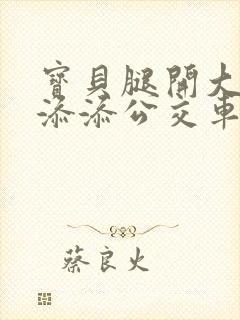 寶貝腿開大
添添公交車
蔡良火